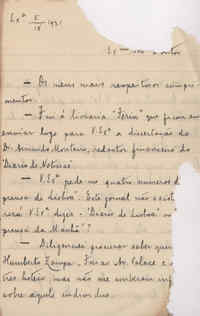 Lxª 5/18 1931
— Os meus mais respeitosos cumpri-
mentos.
— Fui á livraria "Ferin" que ficou de
enviar logo para V.Exª a dissertação do
Dr. Armindo Monteiro, redactor financeiro do
"Diario de Noticias".
— V.Exª pede-me quatro numeros d
prensa de Lisboa. Este jornal não exist
rerá V.Exª dizer - "Diario de Lisboa" ou
prensa da Manhã"?
— Diligenciei procurar saber quem
Humberto Zampa. Fui ao Av. Palace e
tres hoteis, mas não me souberam in
sobre aquele individuo.